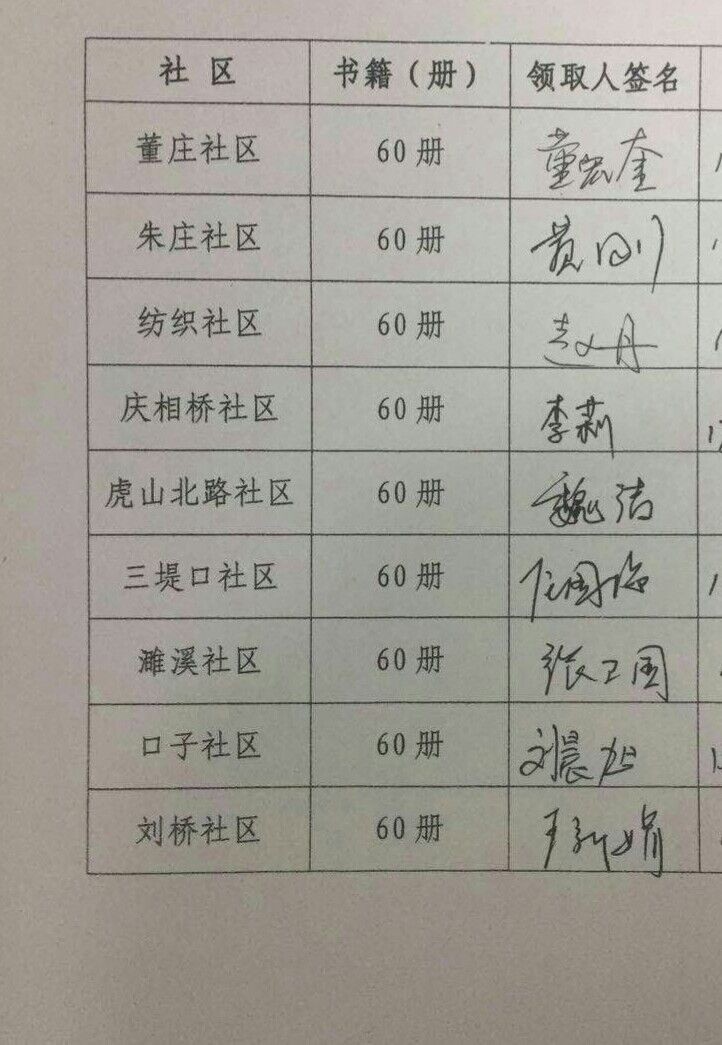 社 区 书籍（册） 领取人签名
董庄社区 60册 董宏奎
朱庄社区 60册 黄刚
纺织社区 60册 赵丹
庆相桥社区 60册 李莉
虎山北路社区 60册 魏洁
三堤口社区 60册
濉溪社区 60册 张卫国
口子社区 60册 刘晨旭
刘桥社区 60册